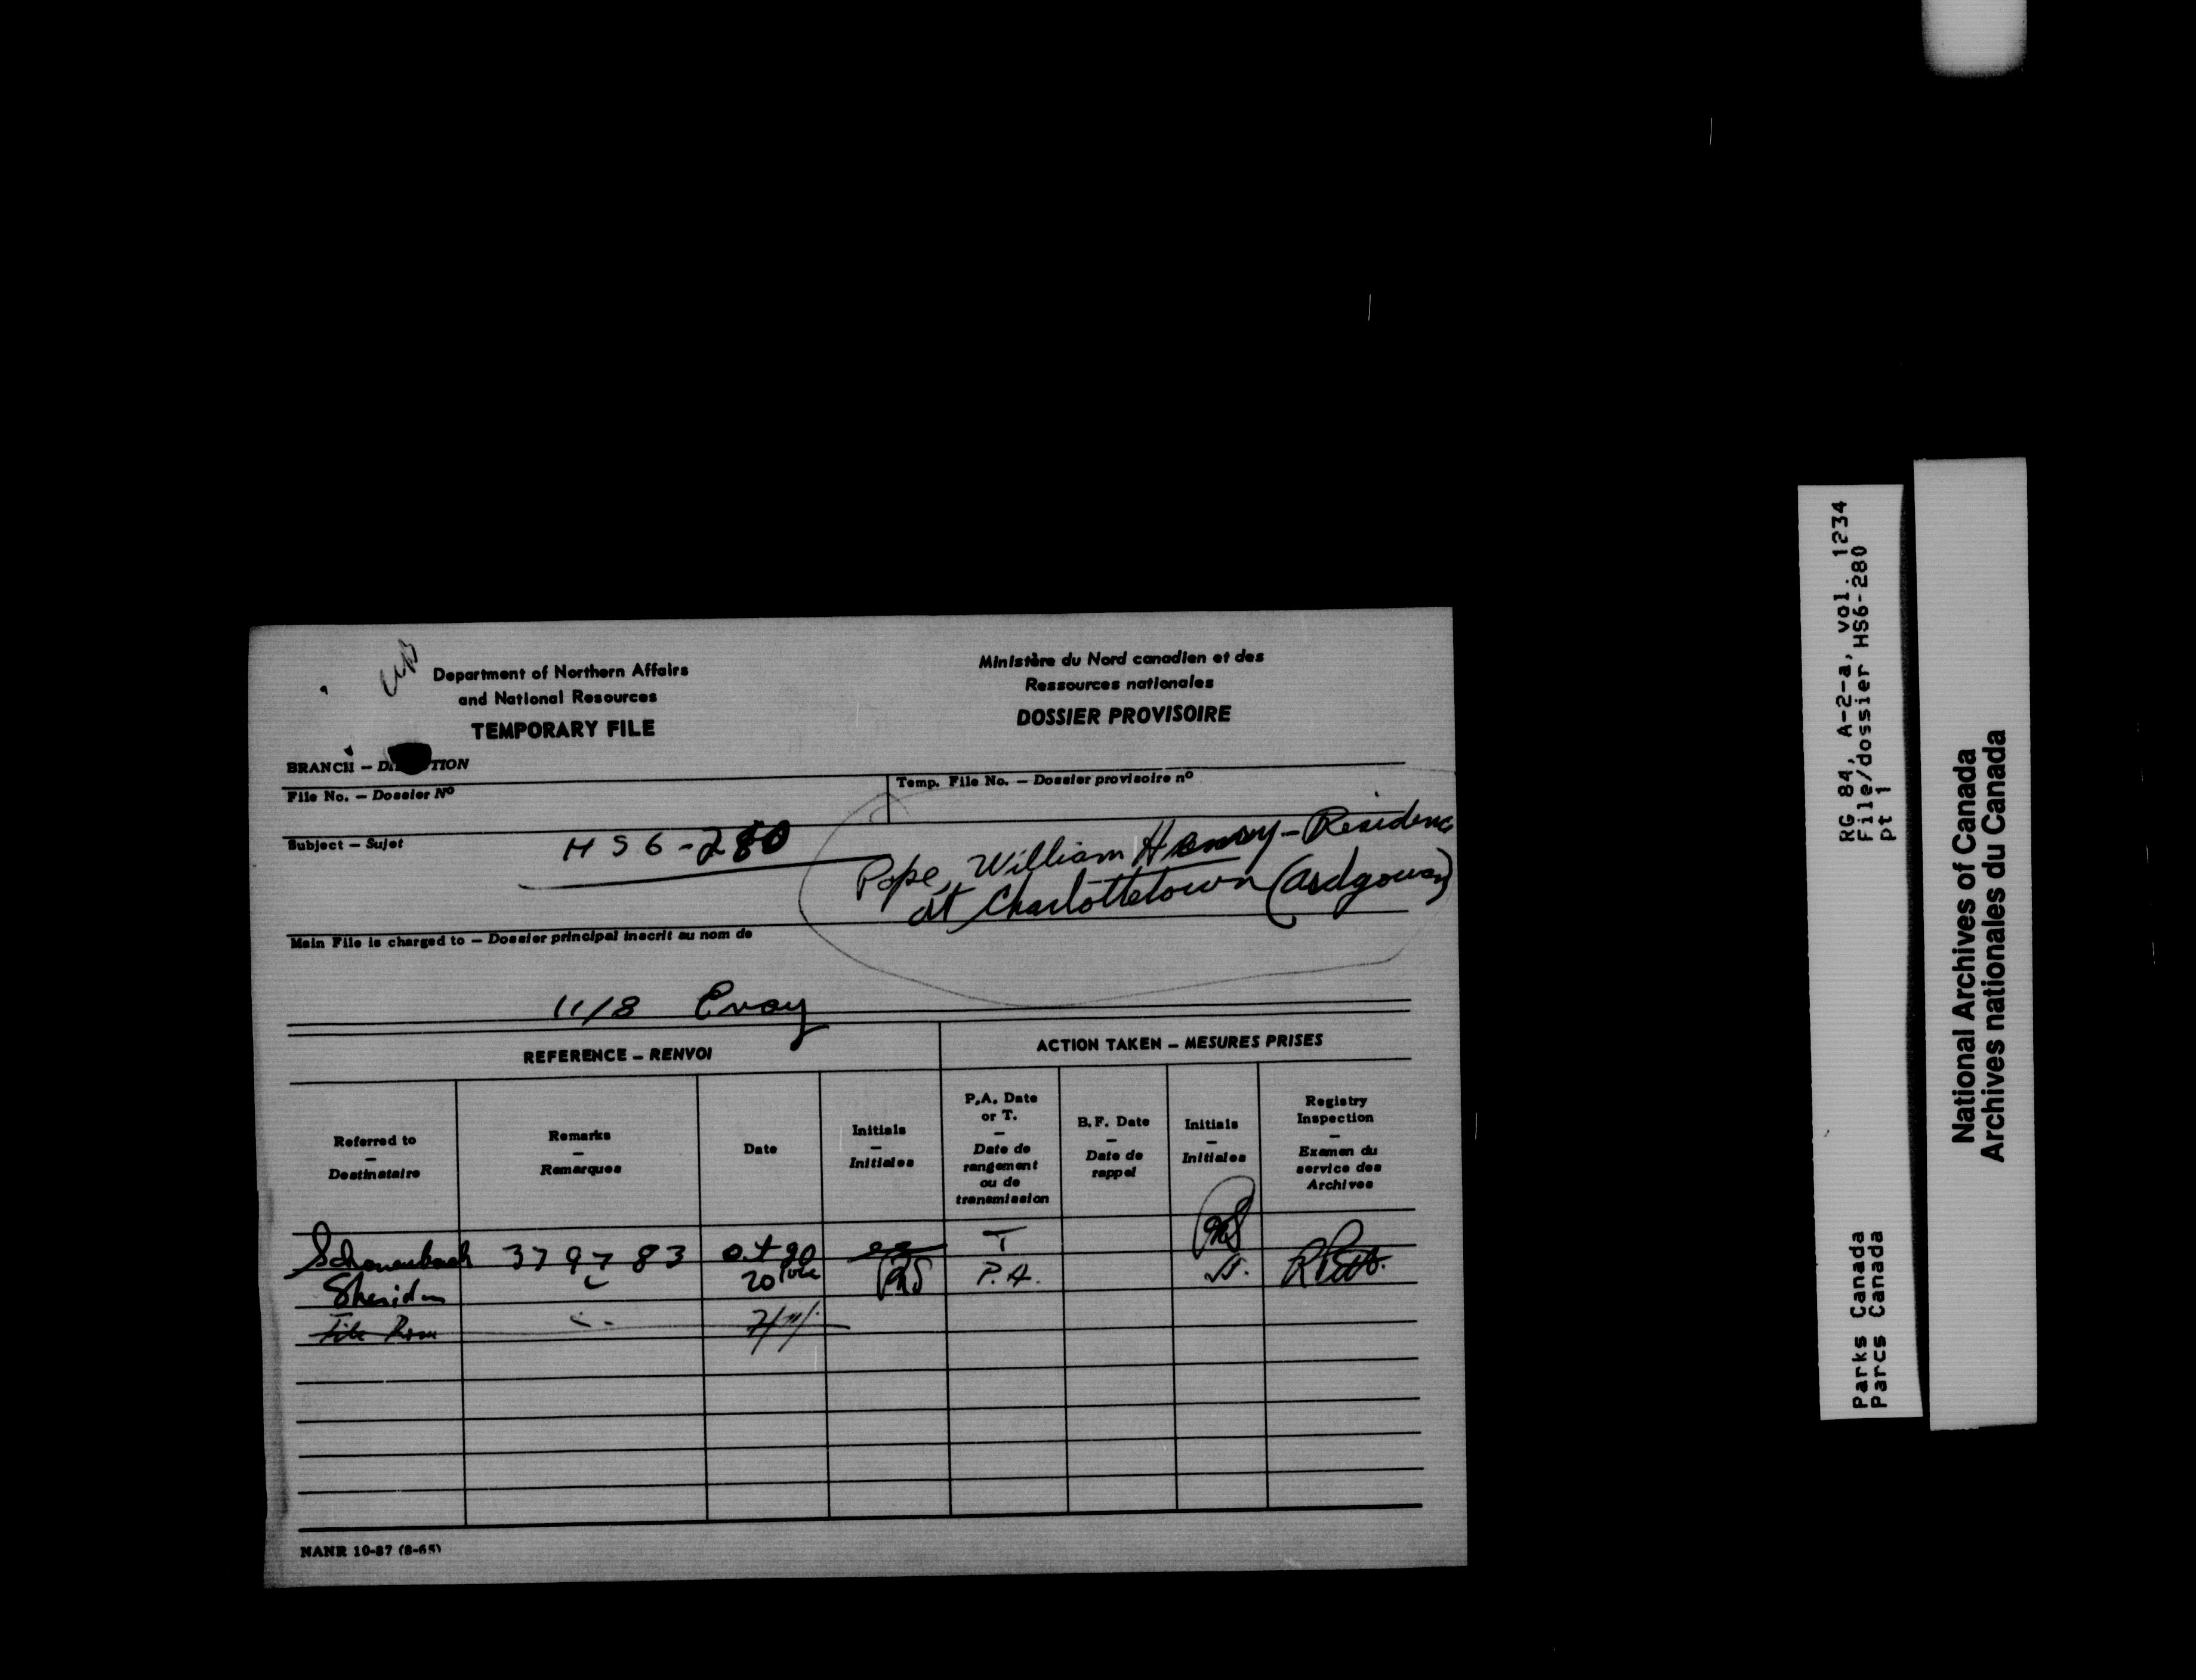 Department of Northern Affairs
and National Resources
TEMPORARY FILE
Ministère du Nord canadien et des
Ressources nationales
DOSSIER PROVISOIRE
BRANCH – DI TION
File No. – Dossier Nº
Temp. File No. – Dossier provisoire nº
Subject – Sujet
HS6-280
Pope, William Henry – Residence
at Charlottetown (Ardgowan)
Main File is charged to – Dossier principal inscrit au nom de
11/8
REFERENCE – RENVOI
ACTION TAKEN – MESURES PRISES
Referred to
–
Destinataire
Remarks
–
Remarques
Date
Initials
–
Initiales
P.A. Date
or T.
–
Date de
rangement
ou de
transmission
B.F. Date
–
Date de
rappel
Initials
–
Initiales
Registry
Inspection
–
Examen du
service des
Archives
379783 T
Sheridan 20 P.A.
File Room
NANR 10-87 (8-65)
RG 84, A-2-a, vol. 1234
File/dossier HS6-280
pt 1
Parks Canada
Parcs Canada
National Archives of Canada
Archives nationales du Canada